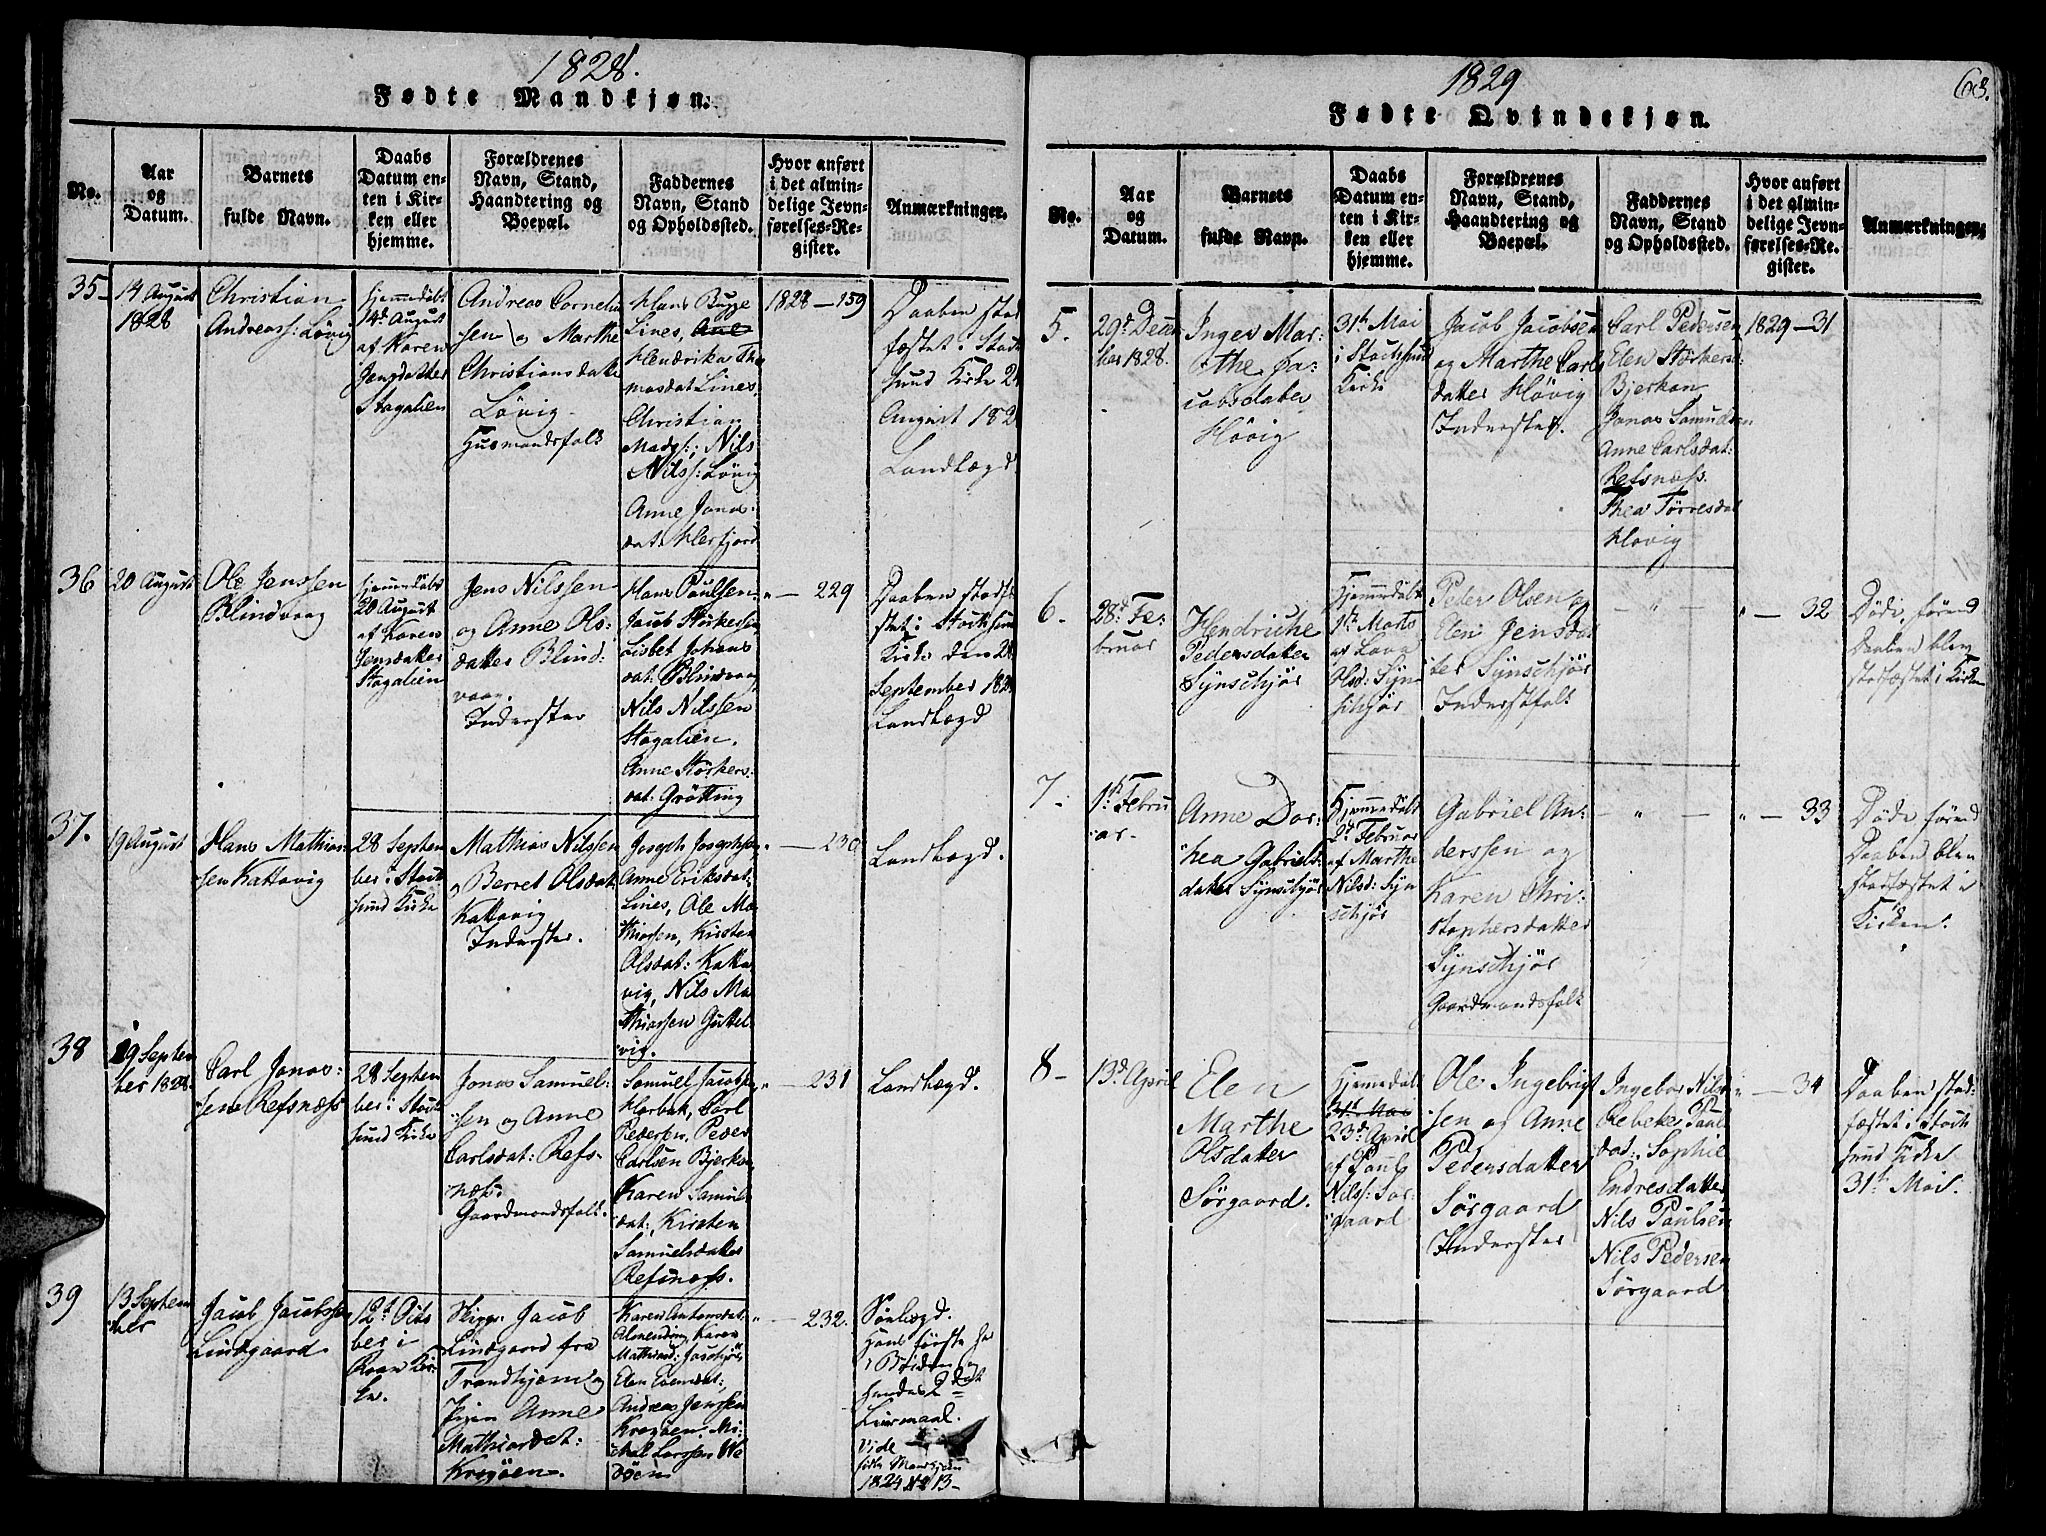 1828.
Fødte Mandkjøn.
No.
Aar
og
Datum.
Barnets
fulde Navn.
Daabs
Datum en-
ten i Kir-
ken eller
hjemme.
Forældrenes
Navn, Stand,
Haandtering og
Boepæl.
Faddernes
Navn, Stand
og Opholdssted.
Hvor anført
i det almin-
delige Jevn-
førelses-Re-
gister.
Anmærkninger.
35-
14 August
1828
Christian
Andreass: Lövig
Hjemmedöbt
14de August
af Karen
Jensdatter
Stogalien
Andreas Corneliu
sen og Marthe
Christiansdatte
Lövig
Husmandsfolk
Hans Bugge
Lines, Ane
Hendrika Tho
masdat: Lines,
Christian
Madss:, Nils
Nilss: Lövig
Anne Jonas-
dat: Herfjord
1828 - 159
Daaben stad
fæstet i Stock
sund Kirke 24
August 182
Landlægd
36
20 August
Ole Jenssen
Blindvaag
Hjemmedöbt
20 August
af Karen
Jensdatter
Stogalien
Jens Nilssen
og Anne Ols-
datter Blind-
vaag.
Inderster
Hans Paulsen
Jacob Störkersen
Lisbet Johans
dat: Blindvaag
Nils Nilssen
Stogalien.
Anne Störkers-
dat: Grötting
" - 229
Daaben stadfæ
stet i Stocksund
Kirke den 28
September 182
Landlægd
37.
19 August
Hans Mathias-
sen Kattavig
28 Septem
ber i Stock
sund Kirke
Mathias Nilssen
og Berret Olsdat:
Kattavig
Inderster.
Joseph Josephsen
Anne Eriksdat:
Lines, Ole Ma
thiassen, Kirsten
Olsdat: Katta
vig, Nils Ma
thiassen Guttel
vig.
" - 230
Landlægd.
38
19 Septem
ber 1828.
Carl Jonas-
sen Refsnæss
28 Septem
ber i Stock
sund Kirke
Jonas Samuel-
sen og Anne
Carlsdat: Refs-
næss.
Gaardmandsfolk.
Samuel Jacobsen
Harbak, Carl
Pedersen, Peder
Carlsen Bjerkan
Karen Samuels
dat:, Kirsten
Samuelsdatter
Refsnæss.
" - 231
Landlægd.
39
13 Septem
ber
Jacob Jacobssen
Lindgaard
12te Octo
ber i
Roan Kir-
ke.
Skipper Jacob
Lindgaard fra
Trondhjem og
Pigen Anne
Mathiasdat:
Kraaöen.
Karen Antonsdat:
Almending, Karen
Mathiasd:
Elen Evensdat:,
Andreas Jenssen
Kraaöen, Mi-
chel Larssen We
döen
" - 232.
Sölægd.
Hans förste har
Pigen
hendes 2det
Leiermaal.
Vide
födte Mandkjön
1824 No 13-
1829
63.
Fødte Qvindekjøn.
No.
Aar
og
Datum.
Barnets
fulde Navn.
Daabs
Datum en-
ten i Kir-
ken eller
hjemme.
Forældrenes
Navn, Stand,
Haandtering og
Boepæl.
Faddernes
Navn, Stand
og Opholdssted.
Hvor anført
i det almin-
delige Jevn-
førelses-Re-
gister.
Anmærkninger.
5.
29de Decem
ber 1828.
Inger Mar-
the Ja-
cobsdatter
Hövig
31te Mai
i Stocksund
Kirke
Jacob Jacobsen
og Marthe Carls
datter Hövig
Inderster.
Carl Pedersen
Elen Störkersd:
Bjerkan
Jonas Samuelsen
Anne Carlsdat:
Refsnæss.
Thea Törresdat
Hövig
1829 - 31
6.
28de Fe-
bruar
Hendriche
Pedersdatter
Synschjör
Hjemmedöbt
1te Marts
af Lava
Olsd: Syn
schjör
Peder Olsen og
Elen Jensdat
ter Synschjör
Inderstfolk
- " -
" - 32
Döde, förend
Daaben blev
stadfæstet i Kirken
7.
1te Febru
ar-
Anne Dor-
thea Gabriels-
datter Synschjör
Hjemmedöbt
2de Februar
af Marthe
Nilsd: Syn
schjör
Gabriel An-
derssen og
Karen Chri-
stophersdatter
Synschjör
Gaardmandsfolk
- " -
" - 33
Döde förend
Daaben blev
stadfæstet i
Kirken.
8-
13de April
Elen
Marthe
Olsdatter
Sörgaard.
Hjemmedöbt
31te Mai
23de April
af Paul
Nilss: Sör-
gaard
Ole Ingebrigt
sen og Anne
Pedersdatter
Sörgaard
Inderster
Ingebor Nilsd
Rebeke Pauls
dat:, Sophie
Endresdatter
Nils Paulsen
Nils Pedersen
Sörgaard
" - 34
Daaben stad-
fæstet i Stock
sund Kirke
31te Mai.